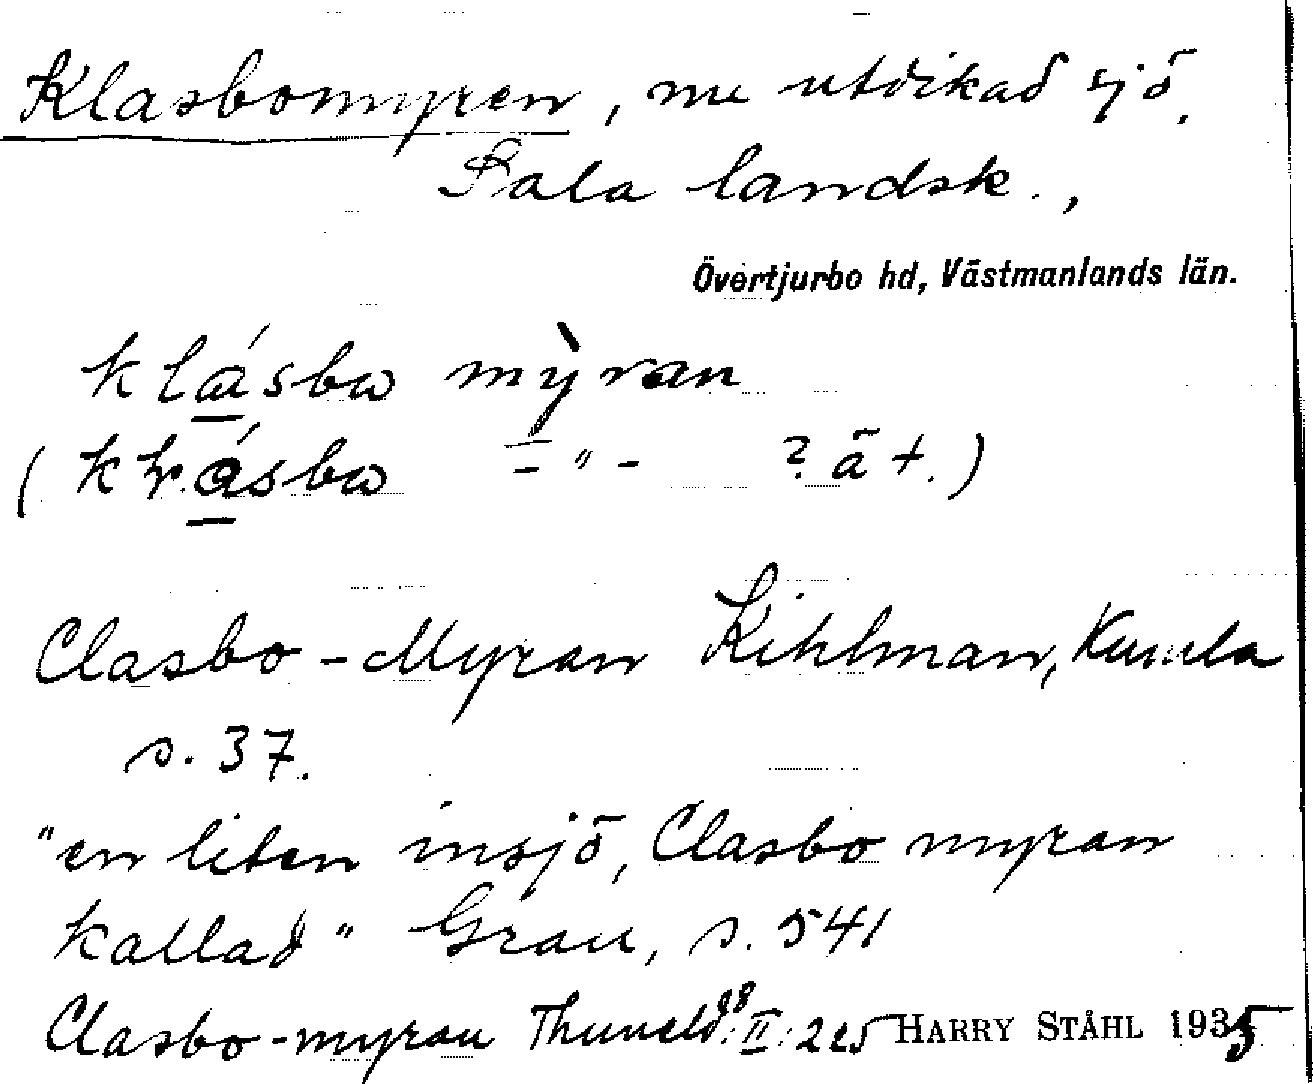 Klasbomyren, nu utdikad sjö.
Sala landsk.,
Övertjurbo hd, Västmanlands län.
klásbω mỳran
(khásbω -"- ? ät.)
Clasbo-Myran Kihlman, Kumla
s. 37.
"en liten insjö, Clasbo myran
kallad" Grau, s. 541
Clasbo-myran II: 225 HARRY STÅHL 1935